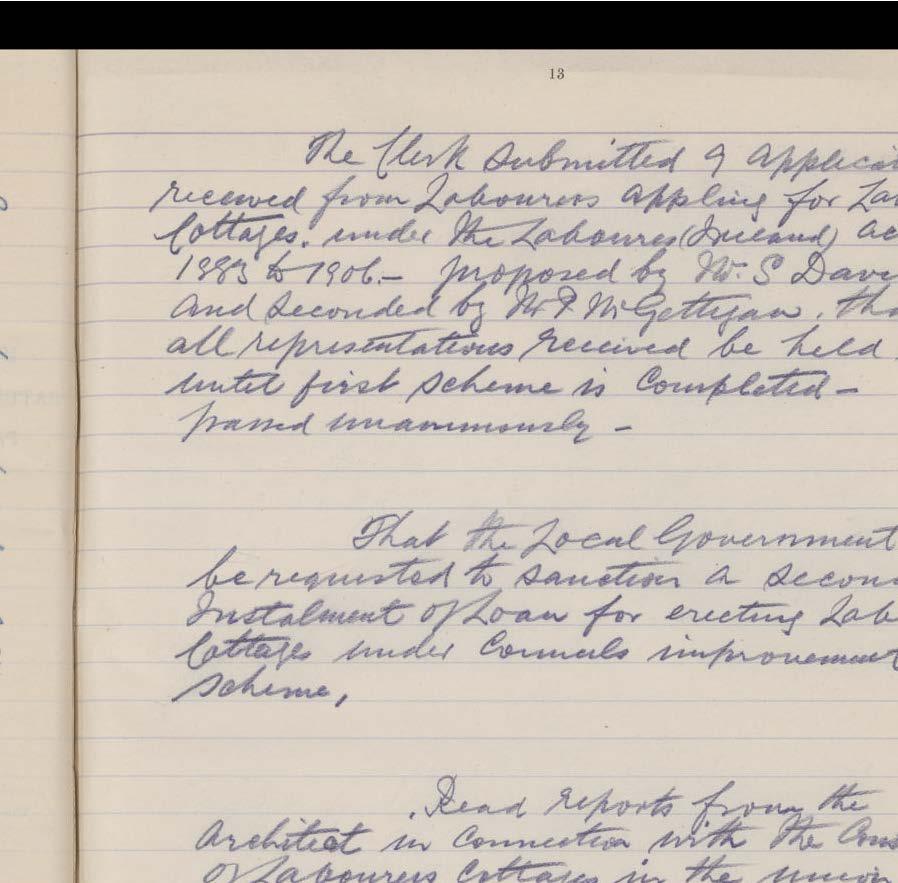 13
The Clerk submitted 9 applicat
received from Labourers appling for La
Cottages. under the Laboures (Ireland) ac
1883 to 1906.- proposed by Mr. S Dav
and seconded by Mr P McGettigan. tha
all representations received be held
until first scheme is Completed -
passed unanimously -
That the Local Government
be requested to sanction a secon
Instalment of Loan for erecting Lab
Cottages under Councils improvement
scheme,
.Read reports from the
Architect in connection with the Cons
of Labourers Cottages in the union